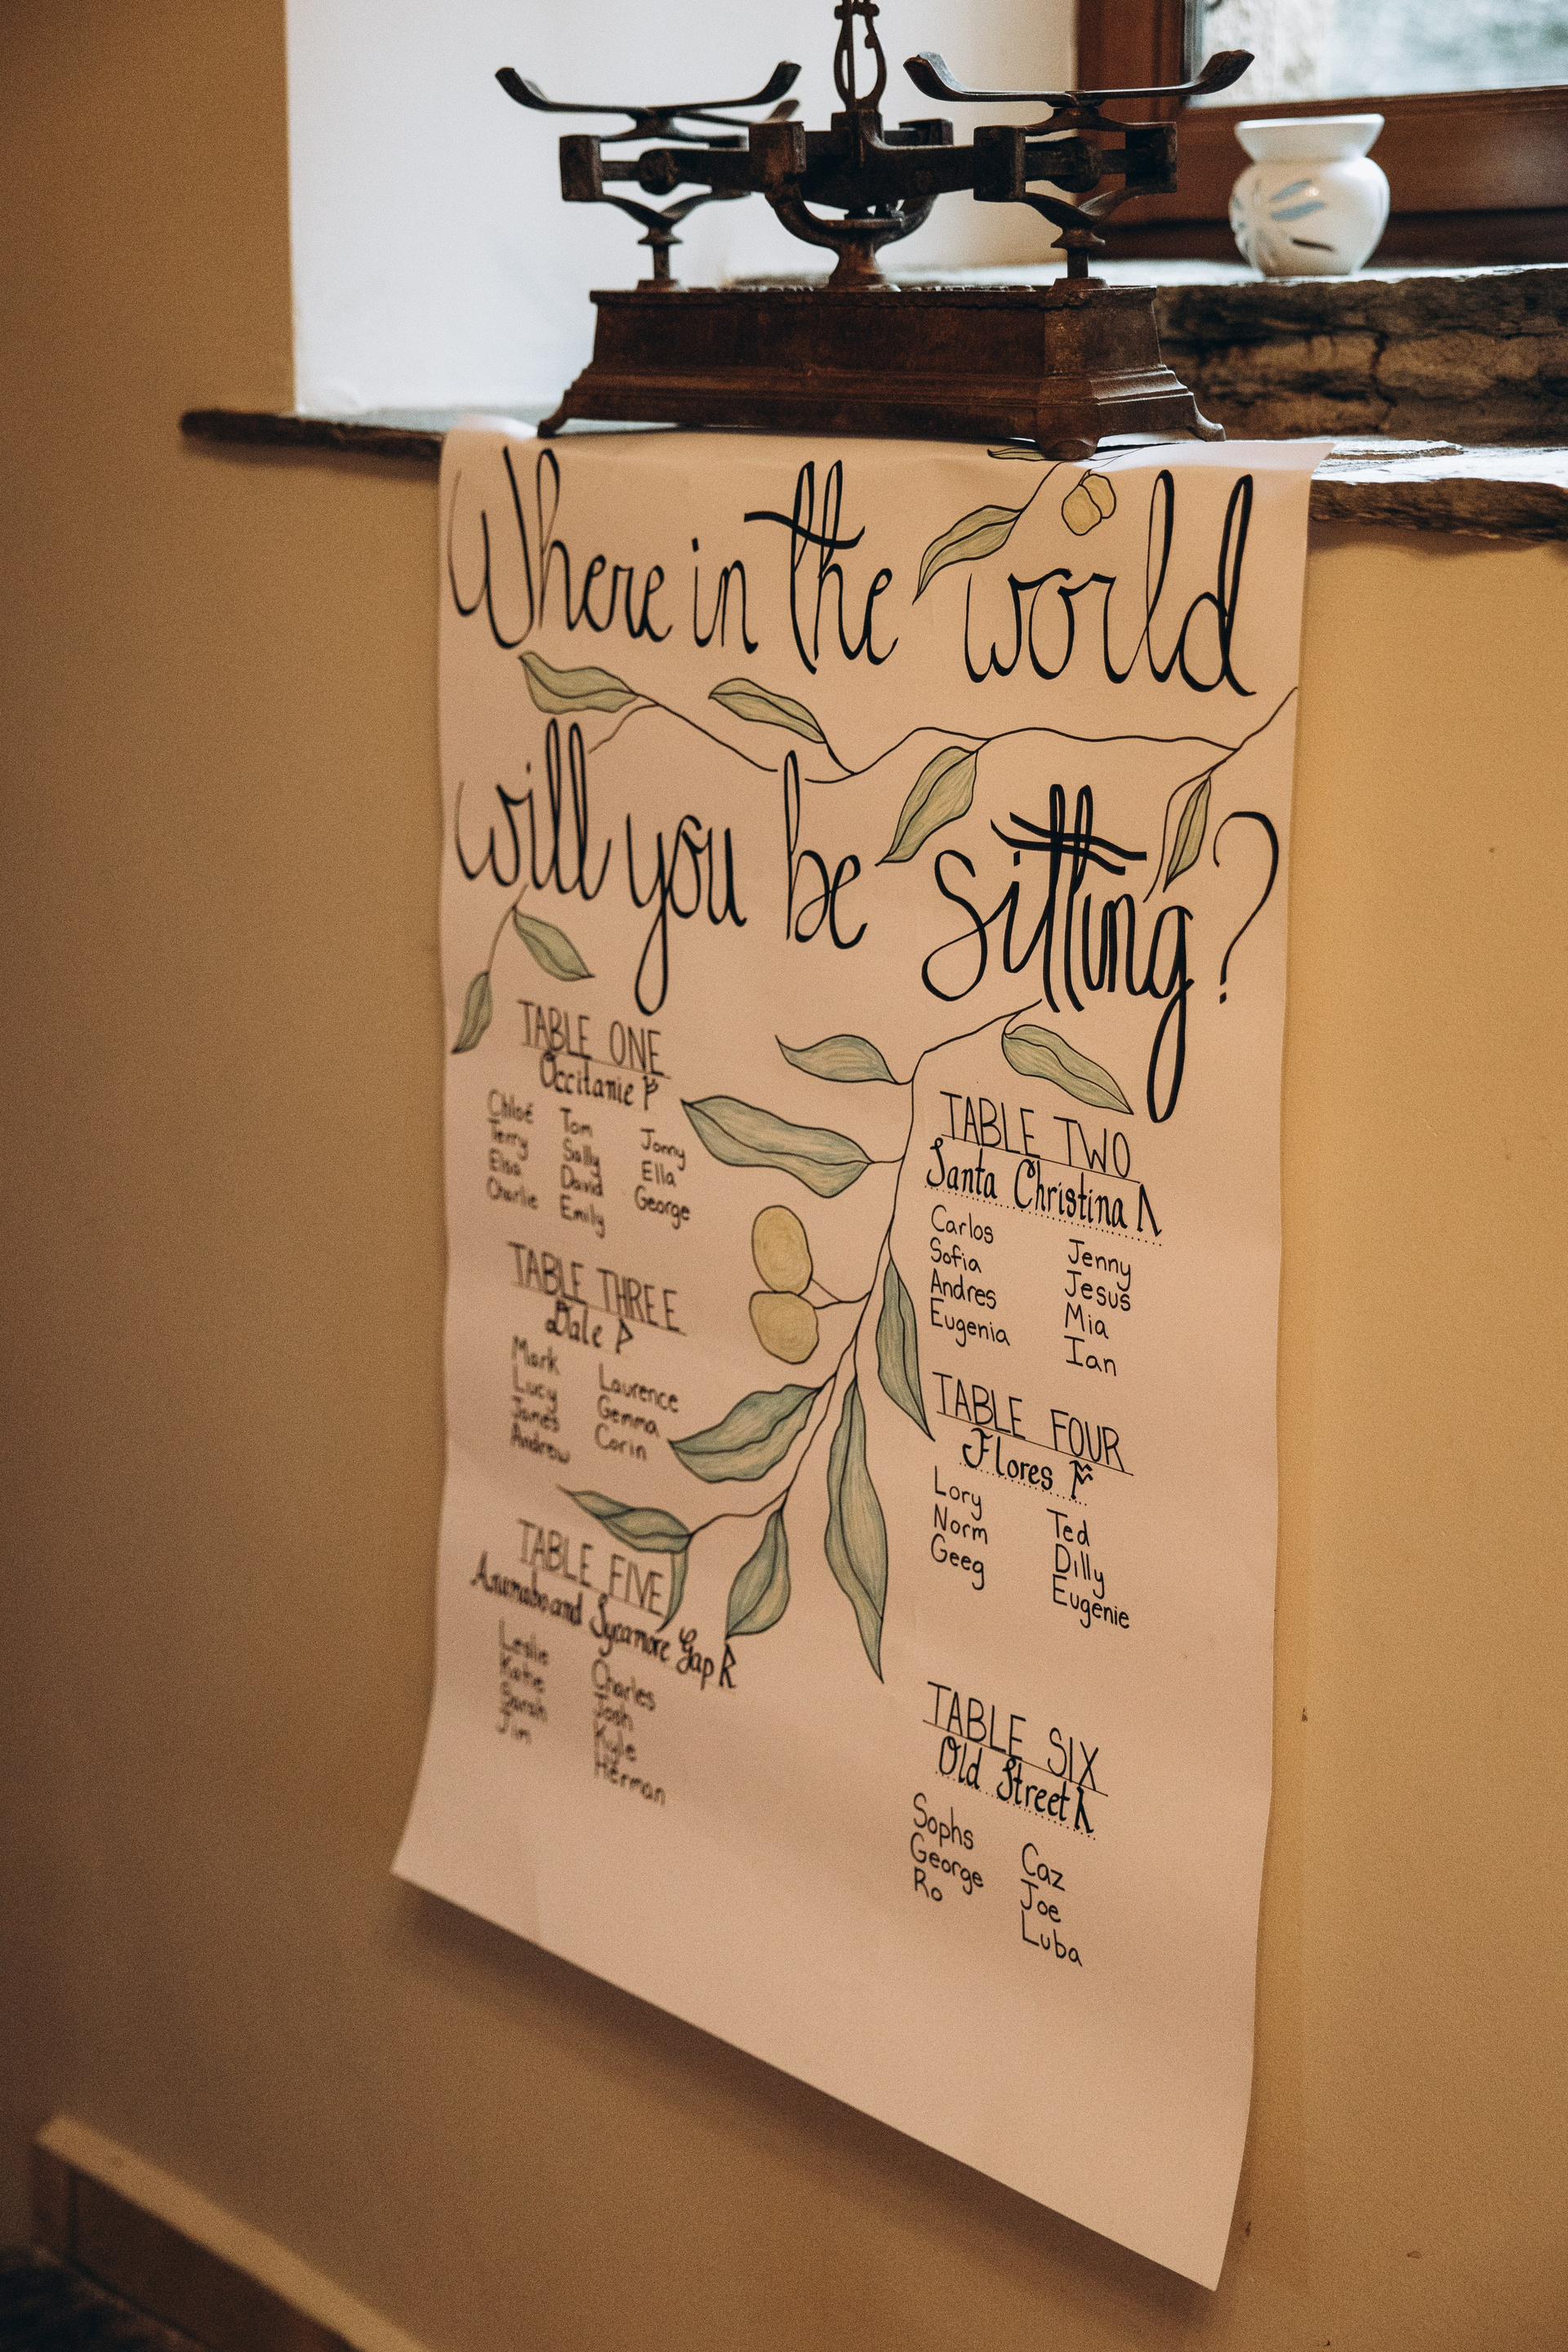 Where in the world
will you be sitting?
TABLE ONE
Occitanie
Chloé
Terry
Elsa
Charlie
Tom
Sally
David
Emily
Jonny
Ella
George
TABLE TWO
Santa Christina
Carlos
Sofia
Andres
Eugenia
Jenny
Jesus
Mia
Ian
TABLE THREE
Dale
Mark
Lucy
James
Andrew
Laurence
Gemma
Corin
TABLE FOUR
Flores
Lory
Norm
Geeg
Ted
Dilly
Eugenie
TABLE FIVE
Anamabo and Sycamore Gap
Leslie
Katie
Sarah
Jim
Charles
Josh
Kyle
Herman
TABLE SIX
Old Street
Sophs
George
Ro
Caz
Joe
Luba